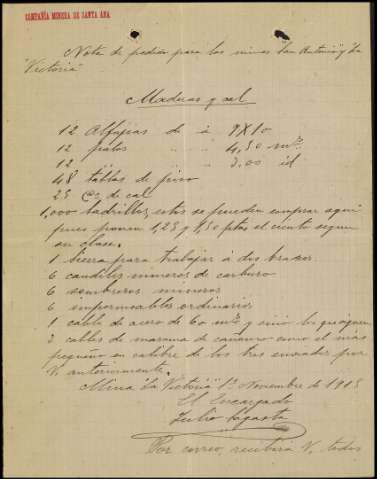 COMPAÑIA MINERA DE SANTA ANA
Nota de pedido para las minas "San Antonio" y "La
Victoria"
Maderas y cal
12 Alfajias de á 9X10
12 palos " " 4,50 mts.
12 " " " 3.00 id
48 tablas de piso
25 @s de cal
1,000 ladrillos, estos se pueden comprar aqui
pues ponen 1,25 y 1,50 ptas el ciento segun
su clase.
1 sierra para trabajar á dos brazos
6 candiles mineros de carburo
6 sombreros mineros
6 impermeables ordinarios
1 cable de acero de 60 mts y
2 cables de maroma de cañamo como el mas
pequeño en calibre de los tres enviados por
V. anteriormente.
Mina "La Victoria" 1º Noviembre de 1905
El Encargado
Julio
Por correo, recibirá V. todos